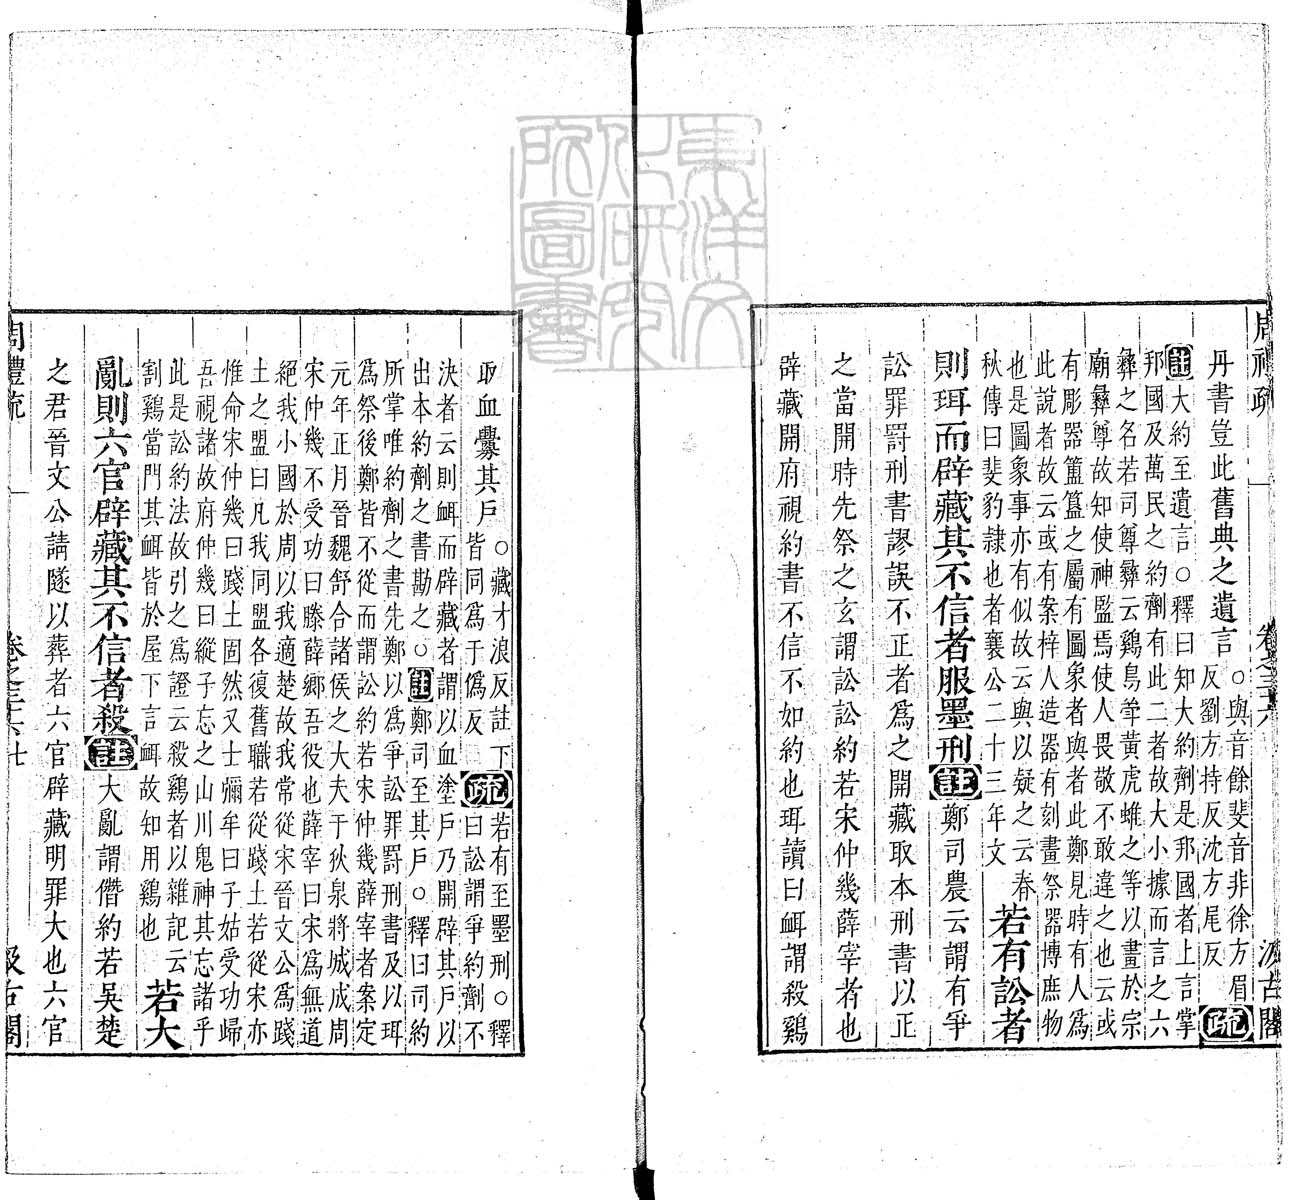 周禮疏 卷之三十六 汲古閣
丹書豈此舊典之遺言 ○與音餘斐音非徐方眉
反劉方持反沈方尾反 疏
註大約至遺言○釋曰知大約劑是邦國者上言掌
邦國及萬民之約劑有此二者故大小據而言之六
彝之名若司尊彝云鷄鳥斝黃虎蜼之等以畫於宗
廟彝尊故知使神監焉使人畏敬不敢違之也云或
有彫器簠簋之屬有圖象者與者此鄭見時有人為
此說者故云或有案梓人造器有刻畫祭器博庶物
也是圖象事亦有似故云與以疑之云春
秋傳曰斐豹隸也者襄公二十三年文 若有訟者
則珥而辟藏其不信者服墨刑 註 鄭司農云謂有爭
訟罪罰刑書謬誤不正者為之開藏取本刑書以正
之當開時先祭之玄謂訟訟約若宋仲幾薛宰者也
辟藏開府視約書不信不如約也珥讀曰衈謂殺鷄
取血釁其戶 ○藏才浪反註下
皆同為于偽反 疏 若有至墨刑○釋
曰訟謂爭約劑不
決者云則衈而辟藏者謂以血塗戶乃開辟其戶以
出本約劑之書勘之○註鄭司至其戶○釋曰司約
所掌唯約劑之書先鄭以為爭訟罪罰刑書及以珥
為祭後鄭皆不從而謂訟約若宋仲幾薛宰者案定
元年正月晉魏舒合諸侯之大夫于狄泉將城成周
宋仲幾不受功曰滕薛郳吾役也薛宰曰宋為無道
絕我小國於周以我適楚故我常從宋晉文公為踐
土之盟曰凡我同盟各復舊職若從踐土若從宋亦
惟命宋仲幾曰踐土固然又士彌牟曰子姑受功歸
吾視諸故府仲幾曰縱子忘之山川鬼神其忘諸乎
此是訟約法故引之為證云殺鷄者以雜記云
割鷄當門其衈皆於屋下言衈故知用鷄也 若大
亂則六官辟藏其不信者殺 註 大亂謂僭約若吳楚
之君晉文公請隧以葬者六官辟藏明罪大也六官
周禮疏 卷之三十六 七 汲古閣
東洋文化研究所圖書